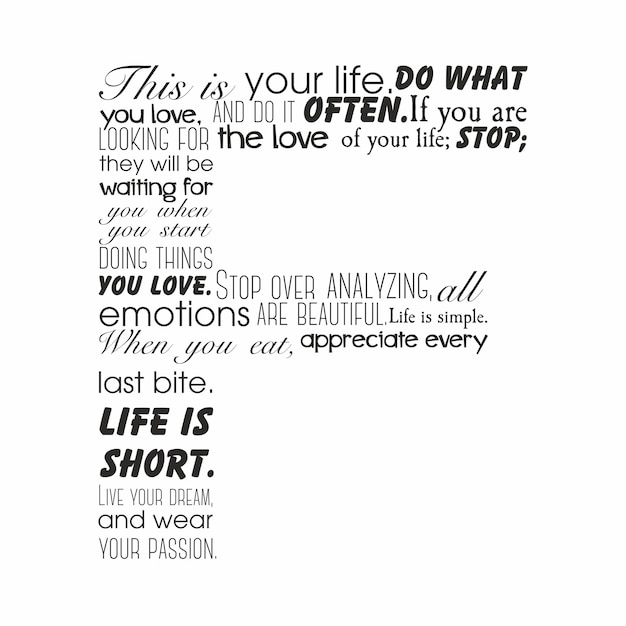 This is your life. DO WHAT
you love, AND DO IT OFTEN. If you are
LOOKING FOR the love of your life; STOP;
they will be
waiting for
you when
you start
DOING THINGS
YOU LOVE. STOP OVER ANALYZING, all
emotions ARE BEAUTIFUL. Life is simple.
When you eat, appreciate every
last bite.
LIFE IS
SHORT.
LIVE YOUR DREAM,
and wear
YOUR PASSION.